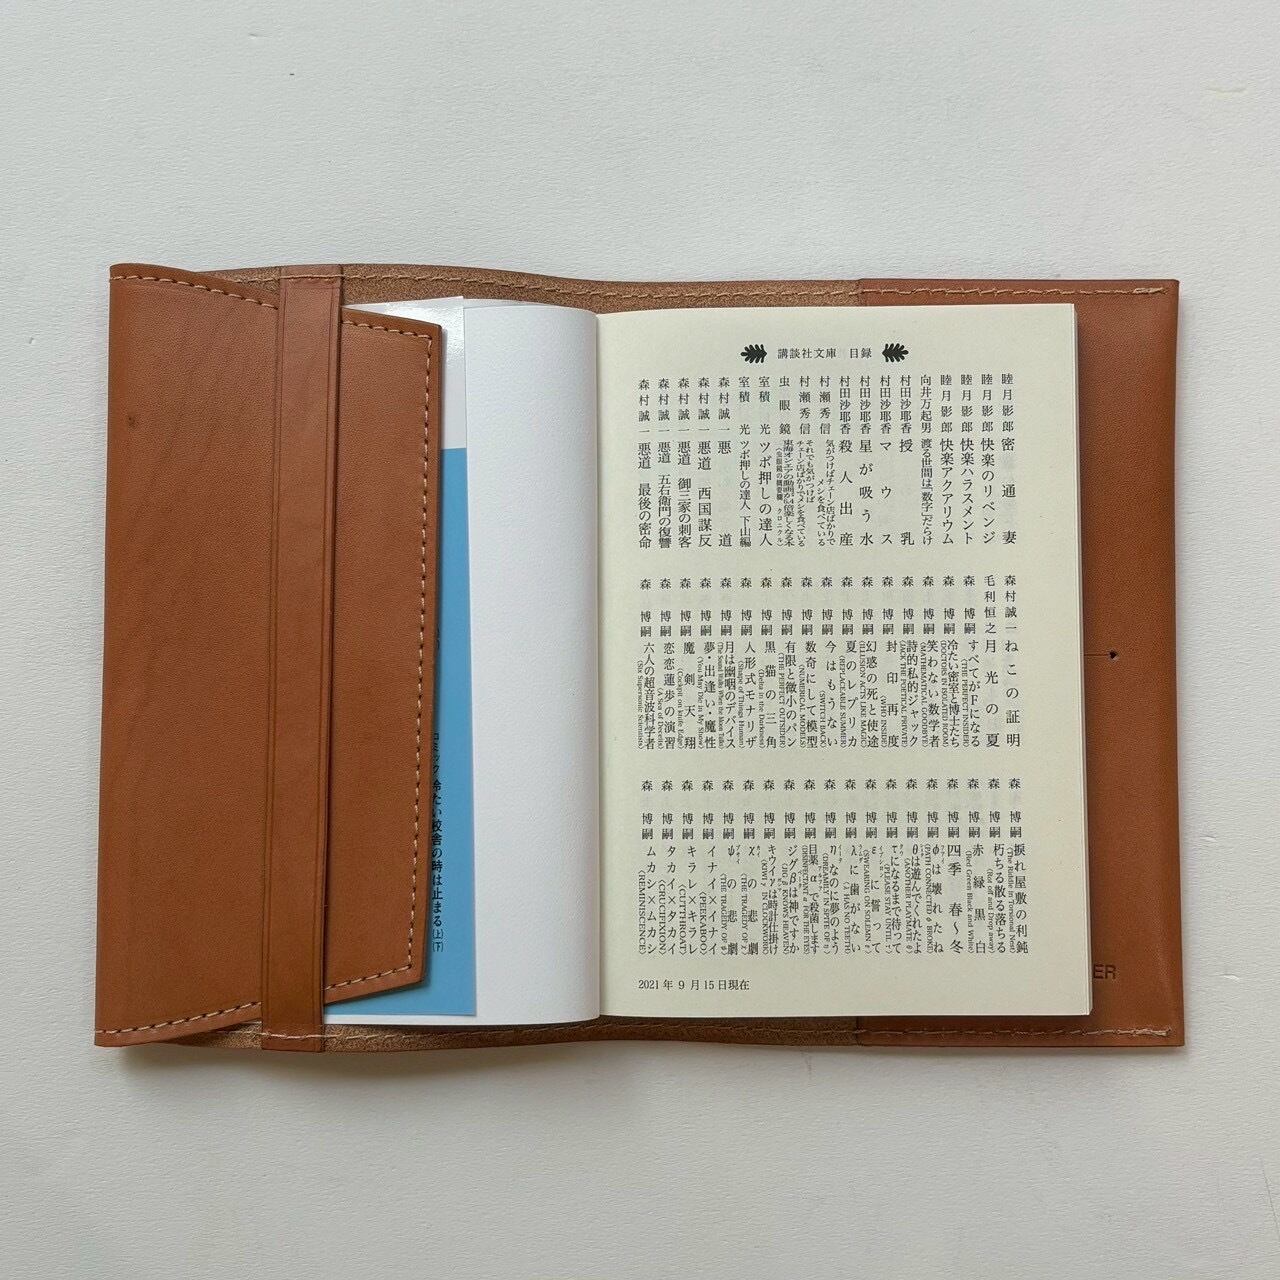 講談社文庫 目録
睦月影郎 密通妻
睦月影郎 快楽のリベンジ
睦月影郎 快楽ハラスメント
睦月影郎 快楽アクアリウム
向井万起男 渡る世間は「数字」だらけ
村田沙耶香 授乳
村田沙耶香 マウス
村田沙耶香 星が吸う水
村田沙耶香 殺人出産
村瀬秀信 気がつけばチェーン店ばかりでメシを食べている
村瀬秀信 それでも気がつけばチェーン店ばかりでメシを食べている
虫眼鏡 東海オンエアの動画が6.4倍楽しくなる本 〈虫眼鏡の概要欄 クロニクル〉
室積光 ツボ押しの達人
室積光 ツボ押しの達人 下山編
森村誠一 悪道
森村誠一 悪道 西国謀反
森村誠一 悪道 御三家の刺客
森村誠一 悪道 五右衛門の復讐
森村誠一 悪道 最後の密命
森村誠一 ねこの証明
毛利恒之 月光の夏
森博嗣 すべてがFになる (THE PERFECT INSIDER)
森博嗣 冷たい密室と博士たち (DOCTORS IN ISOLATED ROOM)
森博嗣 笑わない数学者 (MATHEMATICAL GOODBYE)
森博嗣 詩的私的ジャック (JACK THE POETICAL PRIVATE)
森博嗣 封印再度 (WHO INSIDE)
森博嗣 幻惑の死と使途 (ILLUSION ACTS LIKE MAGIC)
森博嗣 夏のレプリカ (REPLACEABLE SUMMER)
森博嗣 今はもうない (SWITCH BACK)
森博嗣 数奇にして模型 (NUMERICAL MODELS)
森博嗣 有限と微小のパン (THE PERFECT OUTSIDER)
森博嗣 黒猫の三角 (Delta in the Darkness)
森博嗣 人形式モナリザ (Shape of Things Human)
森博嗣 月は幽咽のデバイス (The Sound Walks When the Moon Talks)
森博嗣 夢・出逢い・魔性 (You May Die in My Show)
森博嗣 魔剣天翔 (Cockpit on knife Edge)
森博嗣 恋恋蓮歩の演習 (A Sea of Deceits)
森博嗣 六人の超音波科学者 (Six Supersonic Scientists)
森博嗣 捩れ屋敷の利鈍 (The Riddle in Torsional Nest)
森博嗣 朽ちる散る落ちる (Rot off and Drop away)
森博嗣 赤緑黒白 (Red Green Black and White)
森博嗣 四季 春〜冬
森博嗣 φは壊れたね (PATH CONNECTED φ BROKE)
森博嗣 θは遊んでくれたよ (ANOTHER PLAYMATE θ)
森博嗣 τになるまで待って (PLEASE STAY UNTIL τ)
森博嗣 εに誓って (SWEARING ON SOLEMN ε)
森博嗣 λに歯がない (λ HAS NO TEETH)
森博嗣 ηなのに夢のよう (DREAMILY IN SPITE OF η)
森博嗣 目薬αで殺菌します (DISINFECTANT α FOR THE EYES)
森博嗣 ジグβは神ですか (JIG β KNOWS HEAVEN)
森博嗣 キウイγは時計仕掛け (KIWI γ IN CLOCKWORK)
森博嗣 χの悲劇 (THE TRAGEDY OF χ)
森博嗣 ψの悲劇 (THE TRAGEDY OF ψ)
森博嗣 イナイ×イナイ (PEEKABOO)
森博嗣 キラレ×キラレ (CUTTHROAT)
森博嗣 タカイ×タカイ (CRUCIFIXION)
森博嗣 ムカシ×ムカシ (REMINISCENCE)
2021年9月15日現在
コミック 冷たい校舎の時は止まる(上)(下)
ER